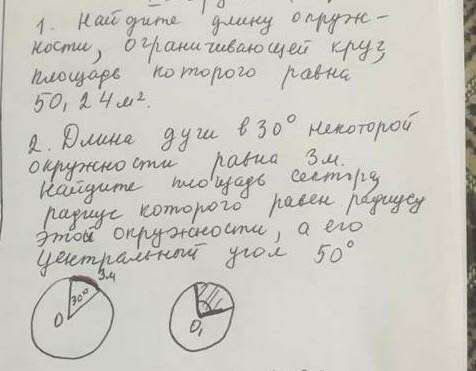 1. Найдите длину окруж-
ности, ограничивающей круг,
площадь которого равна
50,24 м².
2. Длина дуги в 30° некоторой
окружности равна 3м.
Найдите площадь сектора,
радиус которого равен радиусу
этой окружности, а его
центральный угол 50°
3м
30°
O
O₁